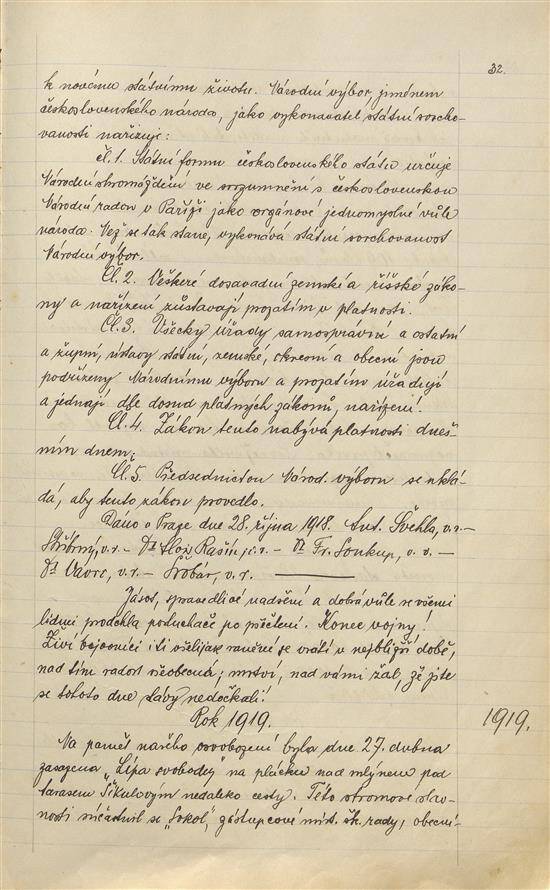 32.
k novému státnímu životu. Národní výbor jménem
československého národa, jako vykonavatel státní svrcho-
vanosti nařizuje:
Čl. 1. Státní formu československého státu určuje
Národní shromáždění ve srozumnění s československou
Národní radou v Paříži jako orgánové jednomyslné vůle
národa. Než se tak stane, vykonává státní svrchovanost
Národní výbor.
Čl. 2. Veškeré dosavadní zemské a říšské záko-
ny a nařízení zůstávají prozatím v platnosti.
Čl. 3. Všecky úřady samosprávní a ostatní
a župní, ústavy státní, zemské, okresní a obecní jsou
podřízeny Národnímu výboru a prozatím úřadují
a jednají dle dosud platných zákonů, nařízení.
Čl. 4. Zákon tento nabývá platnosti dneš-
ním dnem.
Čl. 5. Předsednictvu Národ. výboru se uklá-
dá, aby tento zákon provedlo.
Dáno v Praze dne 28. října 1918. Ant. Švehla, v.r. –
Stříbrný, v.r. – Dr Alois Rašín, v.r. – Dr Fr. Soukup, v. r. –
Dr Vavro, v.r. – Šrobár, v. r. ———
Jásot, spravedlivé nadšení a dobrá vůle se všemi
lidmi prodchla posluchače po přečtení. Konec vojny!
Živí bojovníci ili všelijak raněné se vrátí v nejbližší době,
nad tím radost všeobecná; mrtví, nad vámi žal, že jste
se tohoto dne slávy nedočkali!
Rok 1919.
1919.
Na paměť našeho osvobození byla dne 27. dubna
zasazena „Lípa svobody" na plácku nad mlýnem pod
tarasem Šikulovým nedaleko cesty. Této stromové slav-
nosti súčastnil se „Sokol", zástupcové míst. šk. rady, obecní-